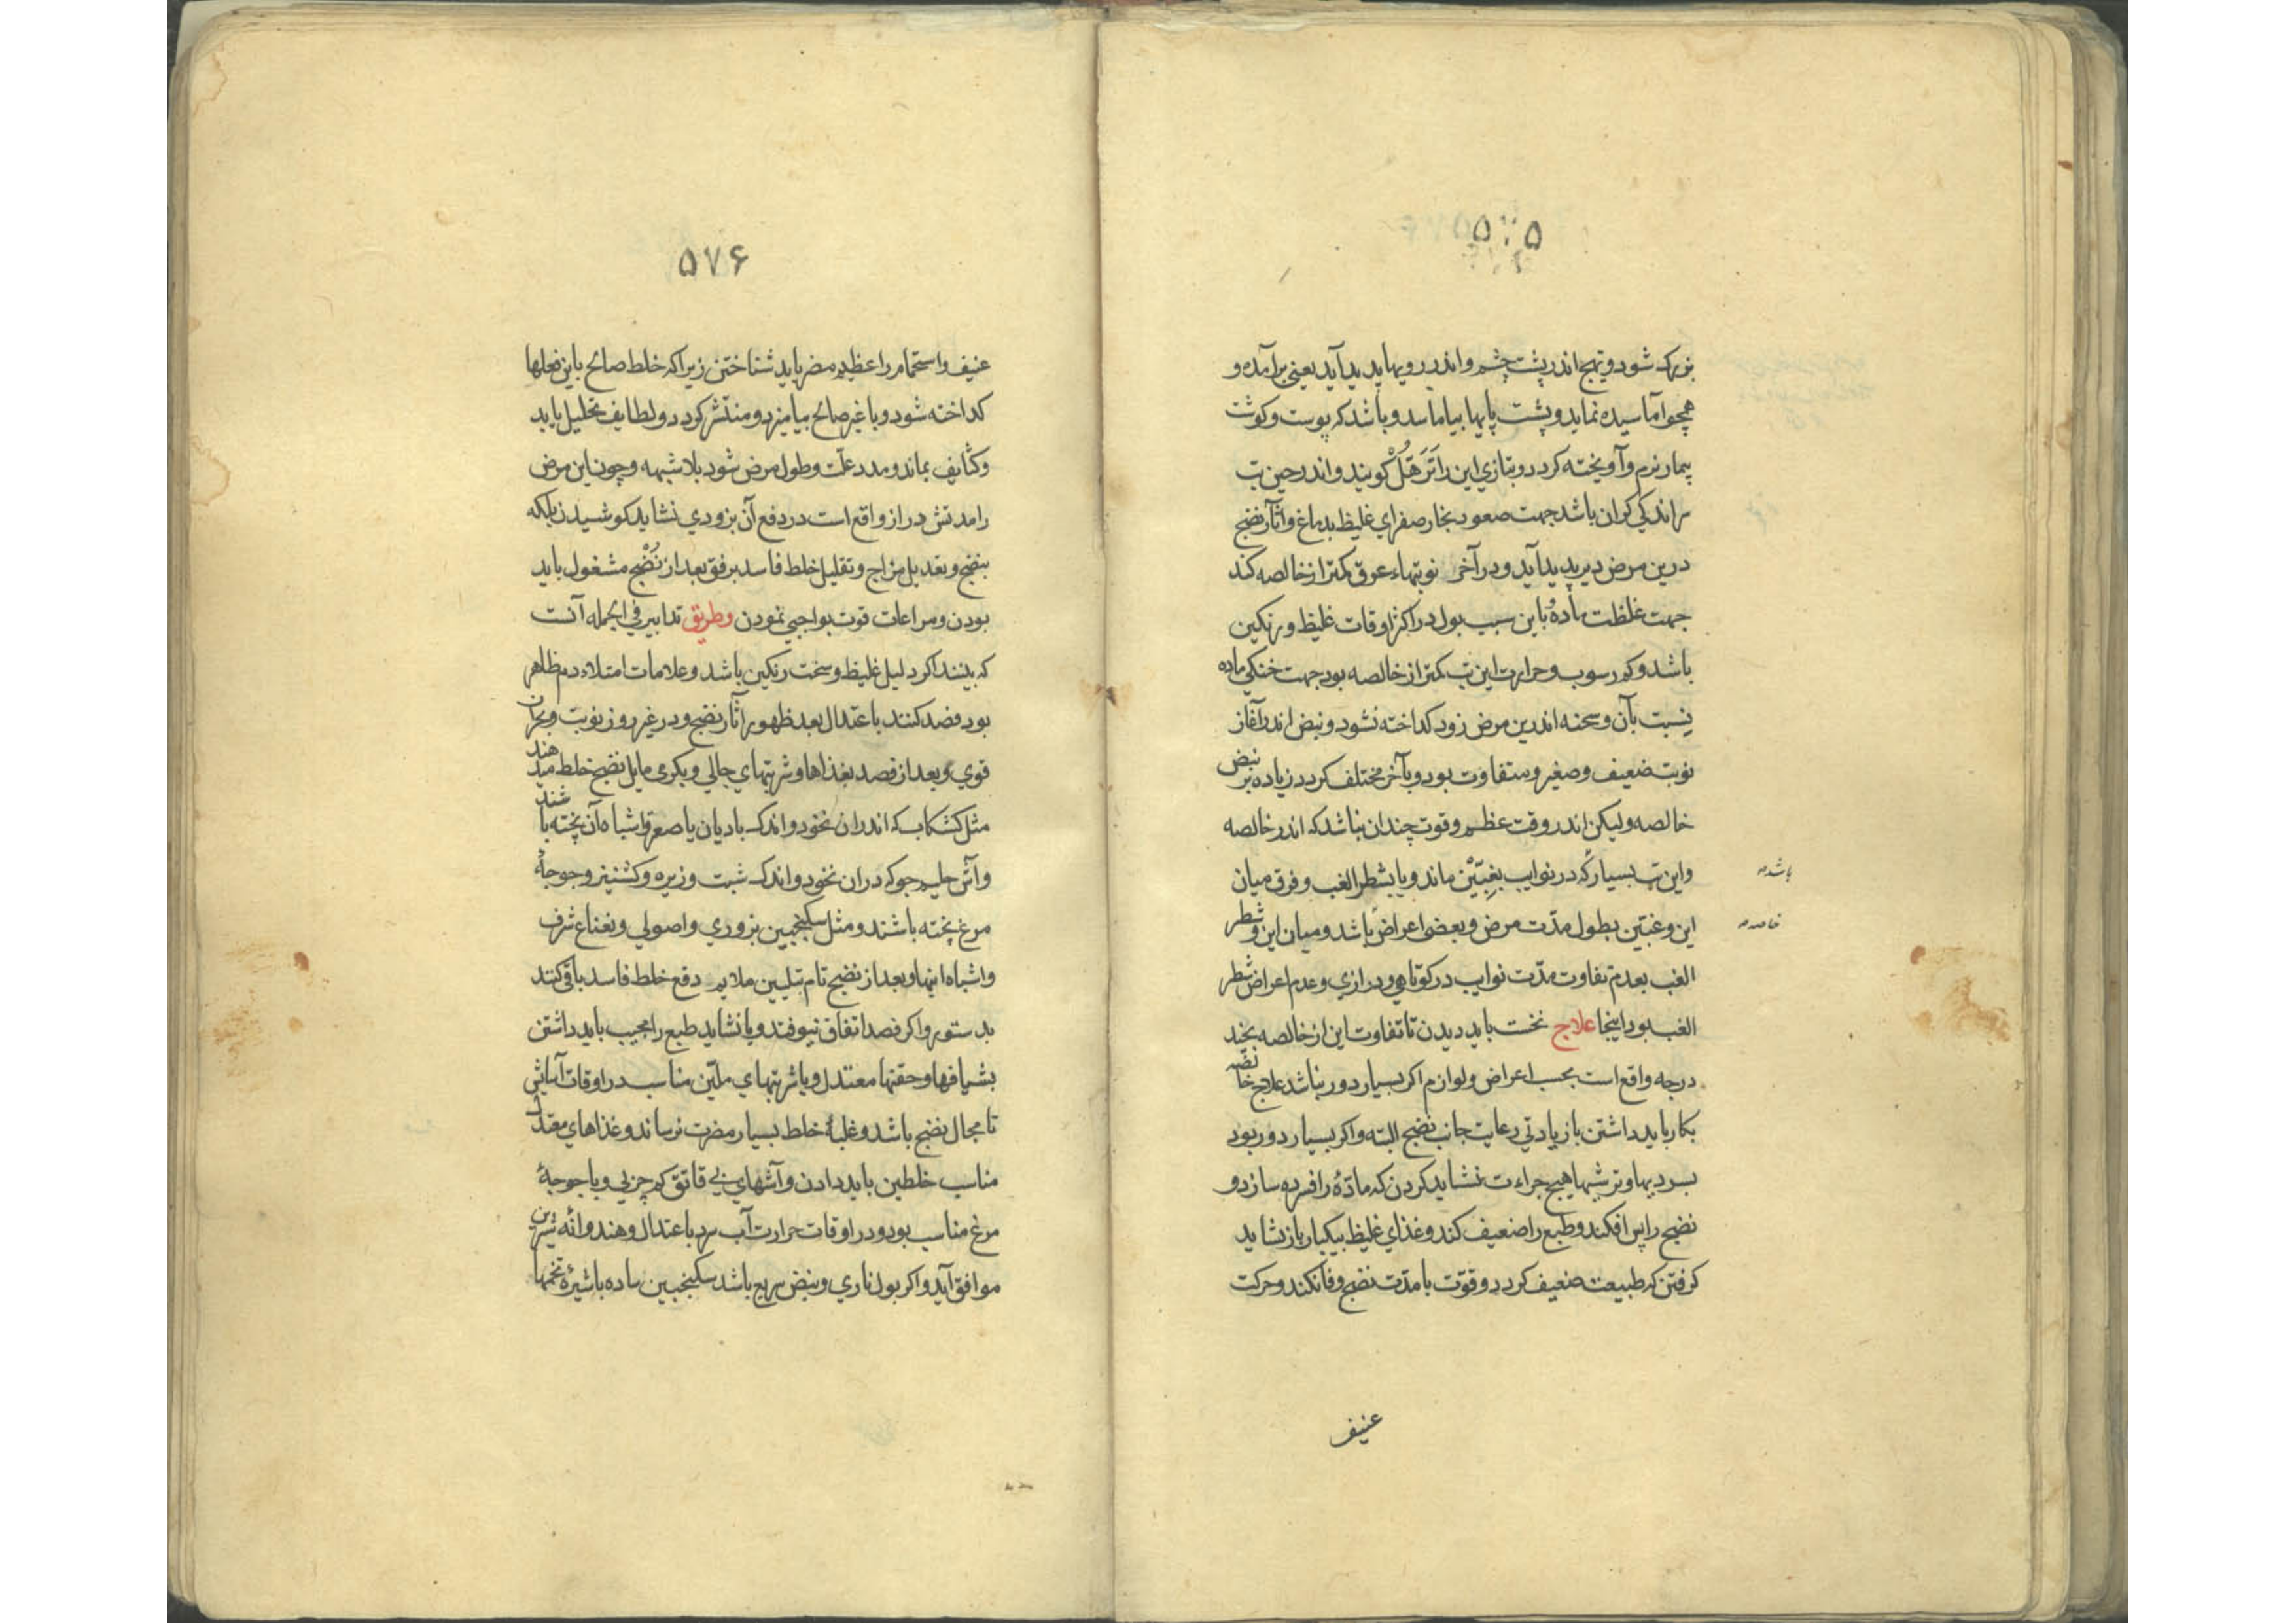 ۵۷۵
بزرک شود و تهبج اندر پشت چشم و اندر رویها پدید آید یعنی برآمده و
همچو آماسیده نماید و پشت پایها بیاماسد و باشد که پوست و کوشت
بیمار نرم و آویخته کردد و بتازی این را تَرَهّلْ کویند و اندر حین تب
سر اندکی کران باشد جهت صعود بخار صفرای غلیظ بدماغ و آثار نضج
درین مرض دیر پدید آید و در آخر نوبتهاء عرق کمتر از خالصه کند
جهت غلظت مادهٔ و باین سبب بول در اکثر اوقات غلیظ و رنکین
باشد و کم رسوب و حرارت این تب کمتر از خالصه بود جهت خنکی ماده
نسبت بآن و سحنه اندرین مرض زود کداخته نشود و نبض اندر آغاز
نوبت ضعیف و صغیر و متفاوت بود و بآخر مختلف کردد زیاده بر نبض
خالصه ولیکن اندر وقت عظم و قوت چندان نباشد که اندر خالصه
باشد
واین تب بسیار که در نوایب بغِبّیْن ماند و یا بشطر الغب و فرق میان
خاصه
این و غبّین بطول مدّت مرض و بعضی اعراض باشد و میان این و شطر
الغب بعدم تفاوت مدّت نوایب در کوتاهی و درازی و عدم اعراض شطر
الغب بود اینجا علاج نخست باید دیدن تا تفاوت این از خالصه بچند
درجه واقع است بحسب اعراض و لوازم اکر بسیار دور نباشد علاج خالصه
بکار باید داشتن با زیادتی رعایت جانب نضج البته و اکر بسیار دور بود
بسردیها و ترشیها هیچ جراءت نشاید کردن که مادّهٔ را فسرده سازد و
نضج را پس افکند و طبع را ضعیف کند و غذای غلیظ بیکبار باز نشاید
کرفتن که طبیعت ضعیف کردد و قوّت با مدّت نضج وفا نکند و حرکت
عنیف
۵۷۶
عنیف و استحمام را عظیم مضر باید شناختن زیرا که خلط صالح باین فعلها
کداخته شود و با غیر صالح بیامیزد و منتشر کردد و لطایف تحلیل یابد
و کثایف بماند و مدد علّت و طول مرض شود بلا شبهه و چون این مرض
را مدتش دراز واقع است در دفع آن بزودی نشاید کوشیدن بلکه
بنضج و تعدیل مزاج و تقلیل خلط فاسد برفق بعد از نُضْج مشغول باید
بودن و مراعات قوت بواجبی نمودن وطریق تدابیر فی الجمله آنست
که بینند اکر دلیل غلیظ و سخت رنکین باشد و علامات امتلاء دم ظاهر
بود فصد کنند باعتدال بعد ظهور آثار نضج و در غیر روز نوبت و بحران
قوی و بعد از فصد بغذاها و شربتهای جالی و بکرمی مایل نضج خلط میدهند
مثل کشکاب که اندران نخود و اندک بادیان یا صعتر و اشباه آن پخته باشند
و آش حلیم جو که دران نخود و اندک شبت و زیره و کشنیز و جوجهٔ
مرغ پخته باشند و مثل سکنجبین بزوری و اصولی و نعناع شرف
و اشباه اینها و بعد از نضج تام بتلیین ملایم دفع خلط فاسد باقی کنند
بدستور و اکر فصد اتفاق نیوفتد و یا نشاید طبع را مجیب باید داشتن
بشیافها و حقنها معتدل و یا شربتهای ملیّن مناسب در اوقات آسایش
تا مجال نضج باشد و غلبهٔ خلط بسیار مضرت نرساند و غذاهای معتدل
مناسب خلطین باید دادن و آشهای بی قاتق کم چربی و با جوجهٔ
مرغ مناسب بود و در اوقات حرارت آب سرد باعتدال و هندوانه شیرین
موافق آید و اکر بول ناری و نبض سریع باشد سکنجبین ساده با شیرهٔ تخمها